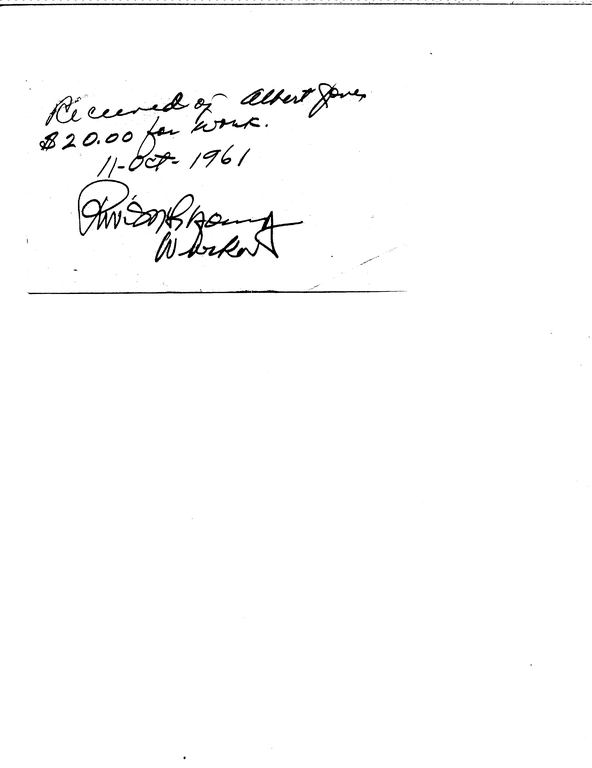 Received of Albert Jones
$20.00 for work.
11-Oct-1961
Worker